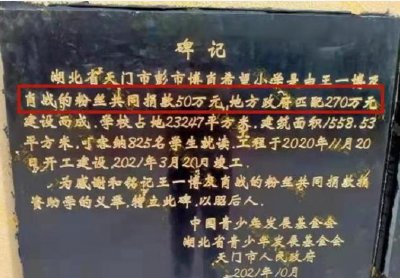 碑记
湖北省天门市彭市博肖希望小学是由王一博及
肖战的粉丝共同捐款50万元,地方政府匹配270万元
建设而成,学校占地23247平方米,建筑面积1558.53
平方米,可容纳825名学生就读,工程于2020年11月20
日开工建设,2021年3月20日竣工。
为感谢和铭记王一博及肖战的粉丝共同捐款捐
资助学的义举,特立此碑,以昭后人。
中国青少年发展基金会
湖北省青少年发展基金会
天门市人民政府
2021年10月